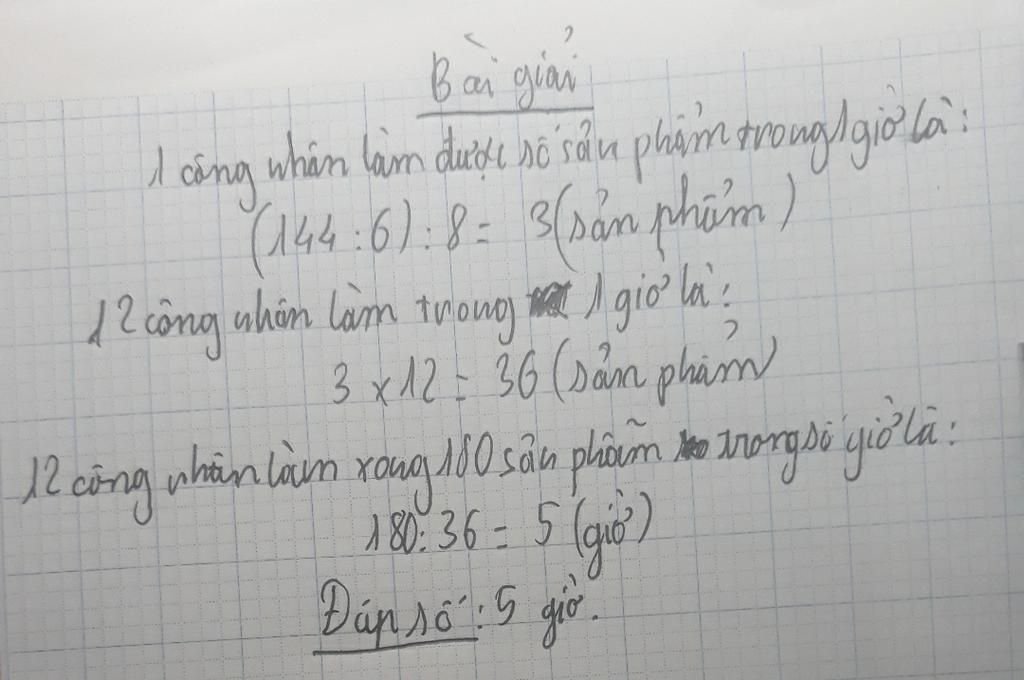 Bài giải
1 công nhân làm được số sản phẩm trong 1 giờ là:
(144 : 6) : 8 = 3 (sản phẩm)
12 công nhân làm trong 1 giờ là:
3 x 12 = 36 (sản phẩm)
12 công nhân làm xong 180 sản phẩm trong số giờ là:
180 : 36 = 5 (giờ)
Đáp số : 5 giờ.